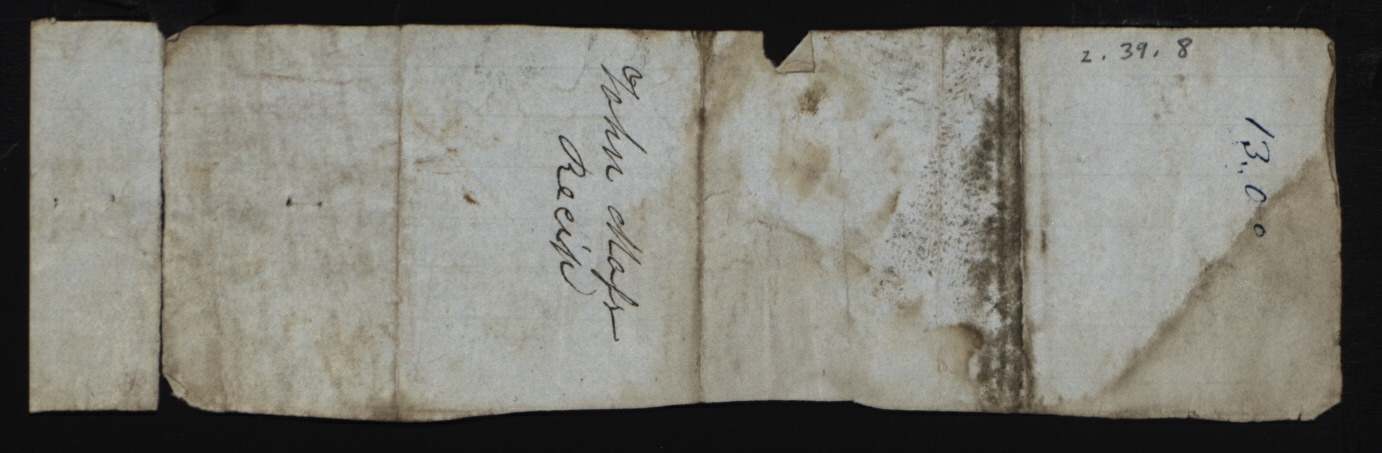 2.39.8
John Moss
Recip
13,00